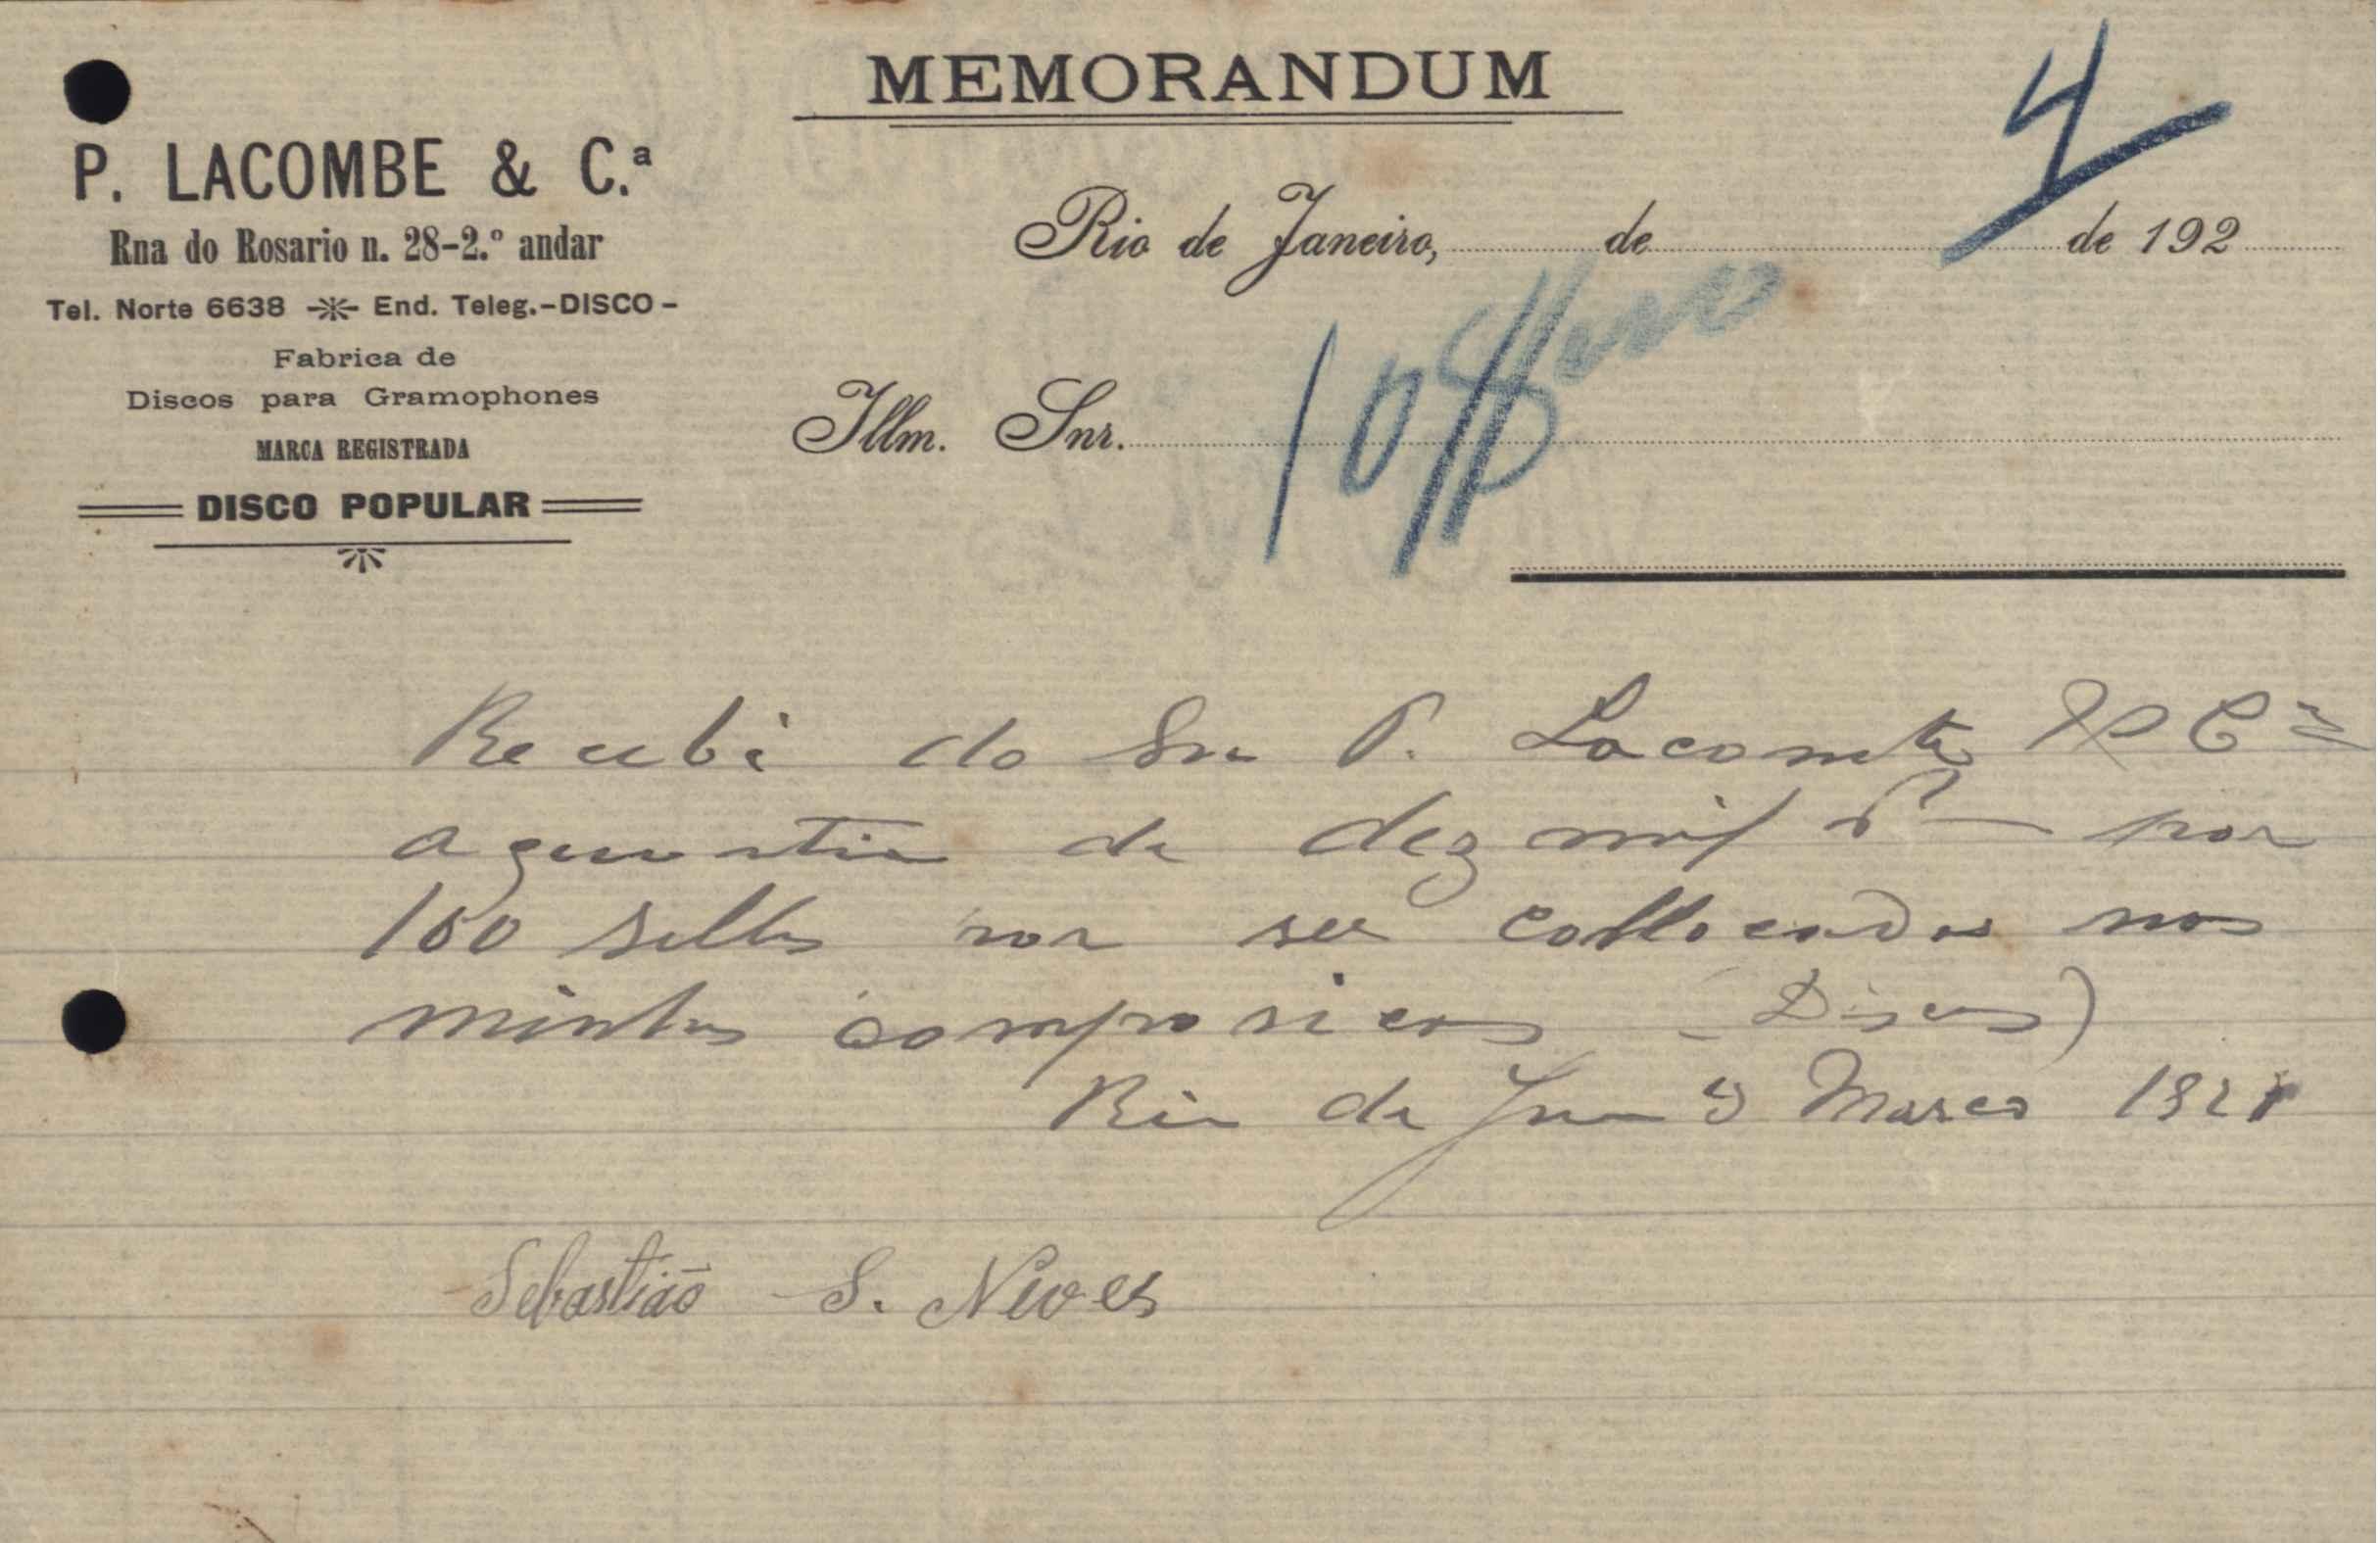 MEMORANDUM
4
P. LACOMBE & C.ª
Rna do Rosario n. 28-2.º andar
Tel. Norte 6638 -※- End. Teleg.-DISCO-
Fabrica de
Discos para Gramophones
MARCA REGISTRADA
DISCO POPULAR
Rio de Janeiro, de de 192
Illm. Snr.
10$000
Recebi do Snr P. Lacombe & Cia
a quantia de dez mil por
100 sellos por ser collocados nos
minhas composicoes (Discos)
Rio de Jan Março 1921
Sebastião S. Neves